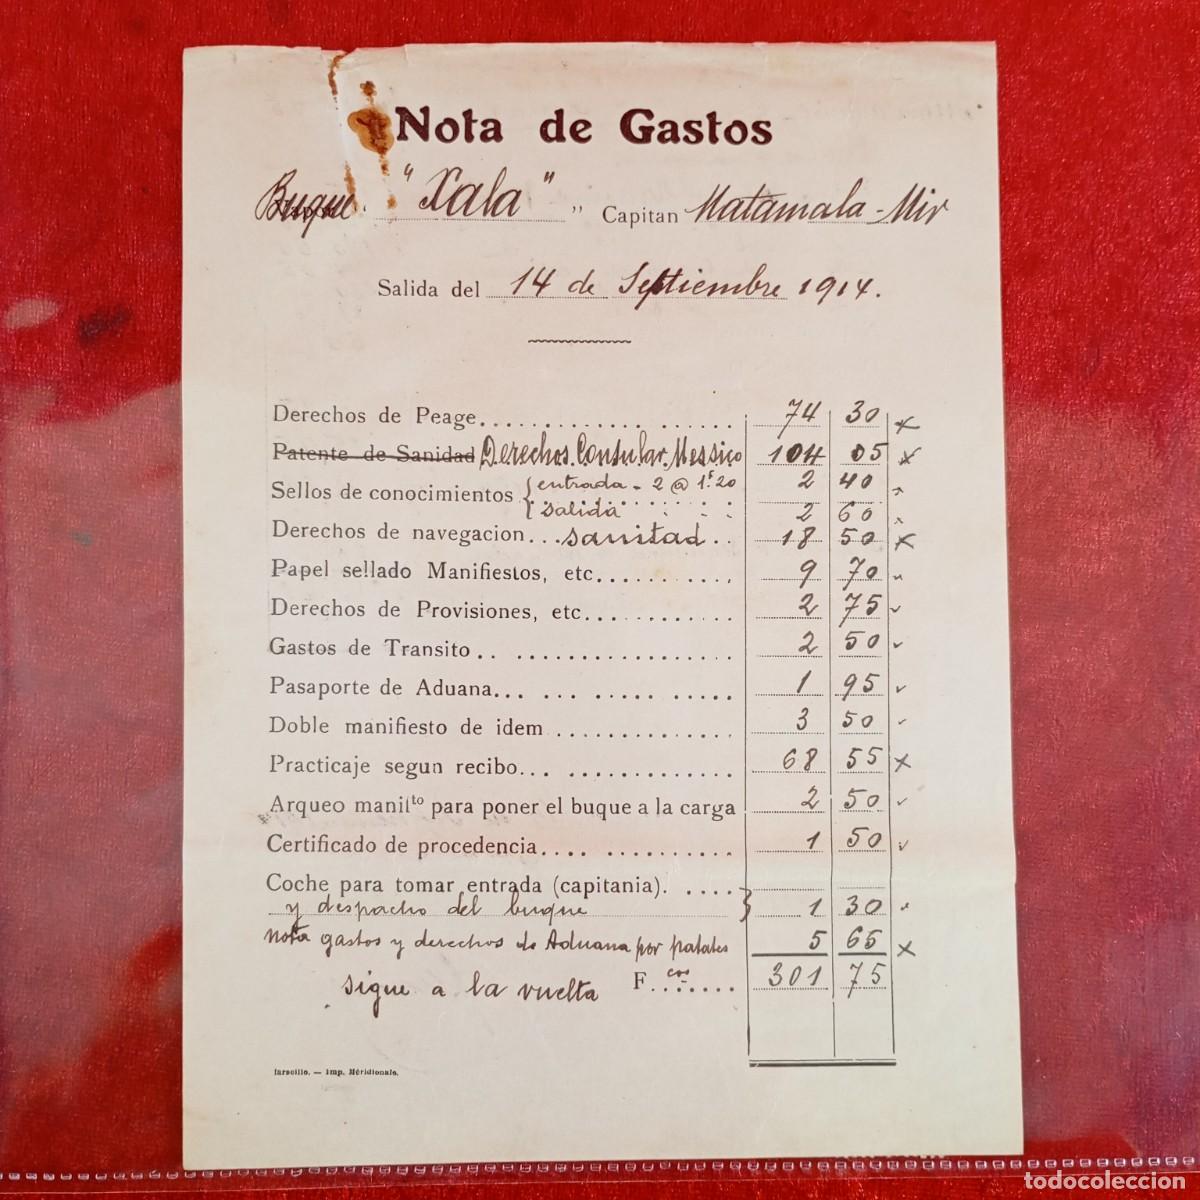 Nota de Gastos
Buque "Xala" " Capitan Matamala-Mir
Salida del 14 de Septiembre 1914.
Derechos de Peage 74 30 x
Patente de Sanidad Derechos Consular Messico 104 05 x
Sellos de conocimientos { entrada - 2 @ 1.20 2 40
salida 2 60
Derechos de navegacion ... sanitad .. 18 50 x
Papel sellado Manifiestos, etc. 9 70
Derechos de Provisiones, etc. 2 75
Gastos de Transito 2 50
Pasaporte de Aduana 1 95
Doble manifiesto de idem 3 50
Practicaje segun recibo 68 55 x
Arqueo manilto para poner el buque a la carga 2 50
Certificado de procedencia 1 50
Coche para tomar entrada (capitania).
y despacho del buque } 1 30
Nota gastos y derechos de Aduana por patates 5 65 x
sigue a la vuelta F.cos 301 75
Marseille. — Imp. Méridionale.
todocoleccion